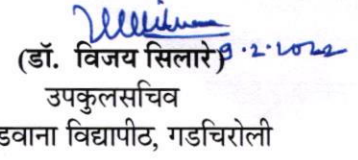 (डॉ. विजय सिलारे) 9.2.2022
उपकुलसचिव
डवाना विद्यापीठ, गडचिरोली